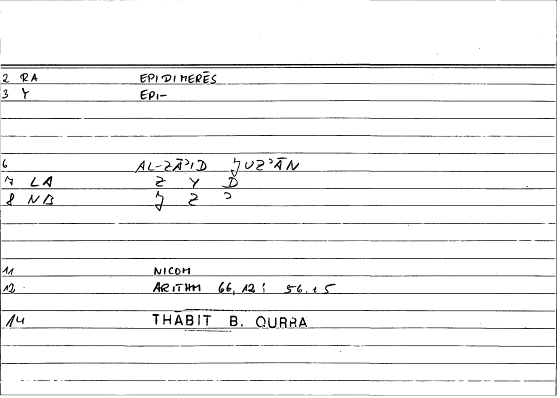 2 RA EPIDIMERĒS
3 Y EPI-
6 AL-ZĀʾID ǦUZʾĀN
7 LA Z Y D
8 NB Ǧ Z ʾ
11 NICOM
12 ARITHM 66,12 : 56,15
14 THĀBIT B. QURRA